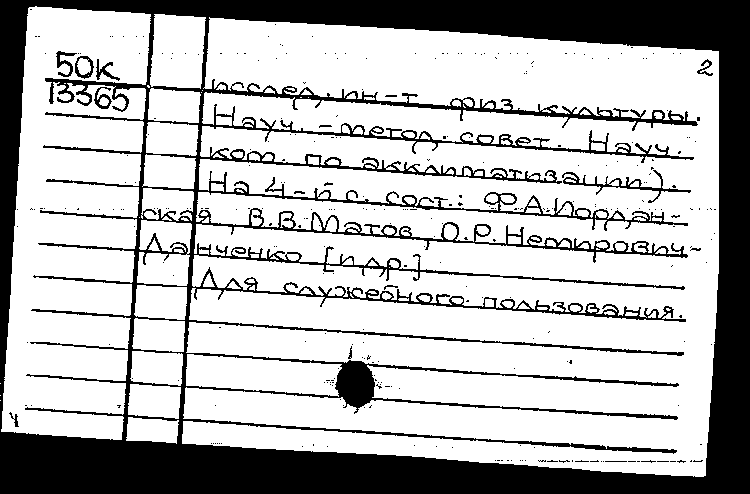 2
50К
13365
исслед. ин-т физ. культуры.
Науч.-метод. совет. Науч.
ком. по акклиматизации).
На 4-й с. сост.: Ф.А.Иордан-
ская, В.В.Матов, О.Р.Немирович-
Данченко [и др.]
Для служебного пользования.
ч